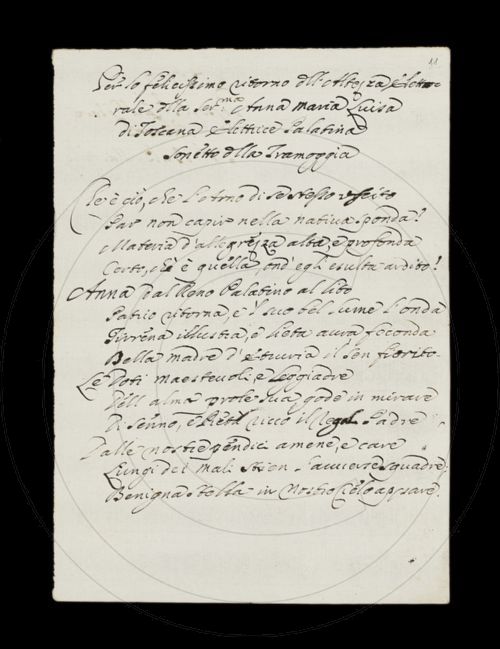 11
Per lo felicissimo ritorno dll'Altezza Eletto=
rale dlla Ser.ma Anna Maria Luisa
di Toscana Elettrice Palatina
Sonetto dlla Tramoggia
Che è ciò, che l'Arno di se stesso uscito
Par non capir nella nativa sponda?
Materia d'allegrezza alta, e profonda
Certo, ch'è quella, ond'egli esulta ardito!
Anna dal Reno Palatino al lito
Patrio ritorna, e'l suo bel lume l'onda
Tirrena illustra, e lieta aura feconda
Della madre d'Etruria il sen fiorito.
Le doti maestevoli, e leggiadre
Dell'alma prole sua gode in mirare
Di senno, e Pietà ricco il Regal Padre
Dalle nostre pendici amene, e care
Lungi dei mali stien l'avverse squadre;
Benigna stella in nostro Cielo appare.